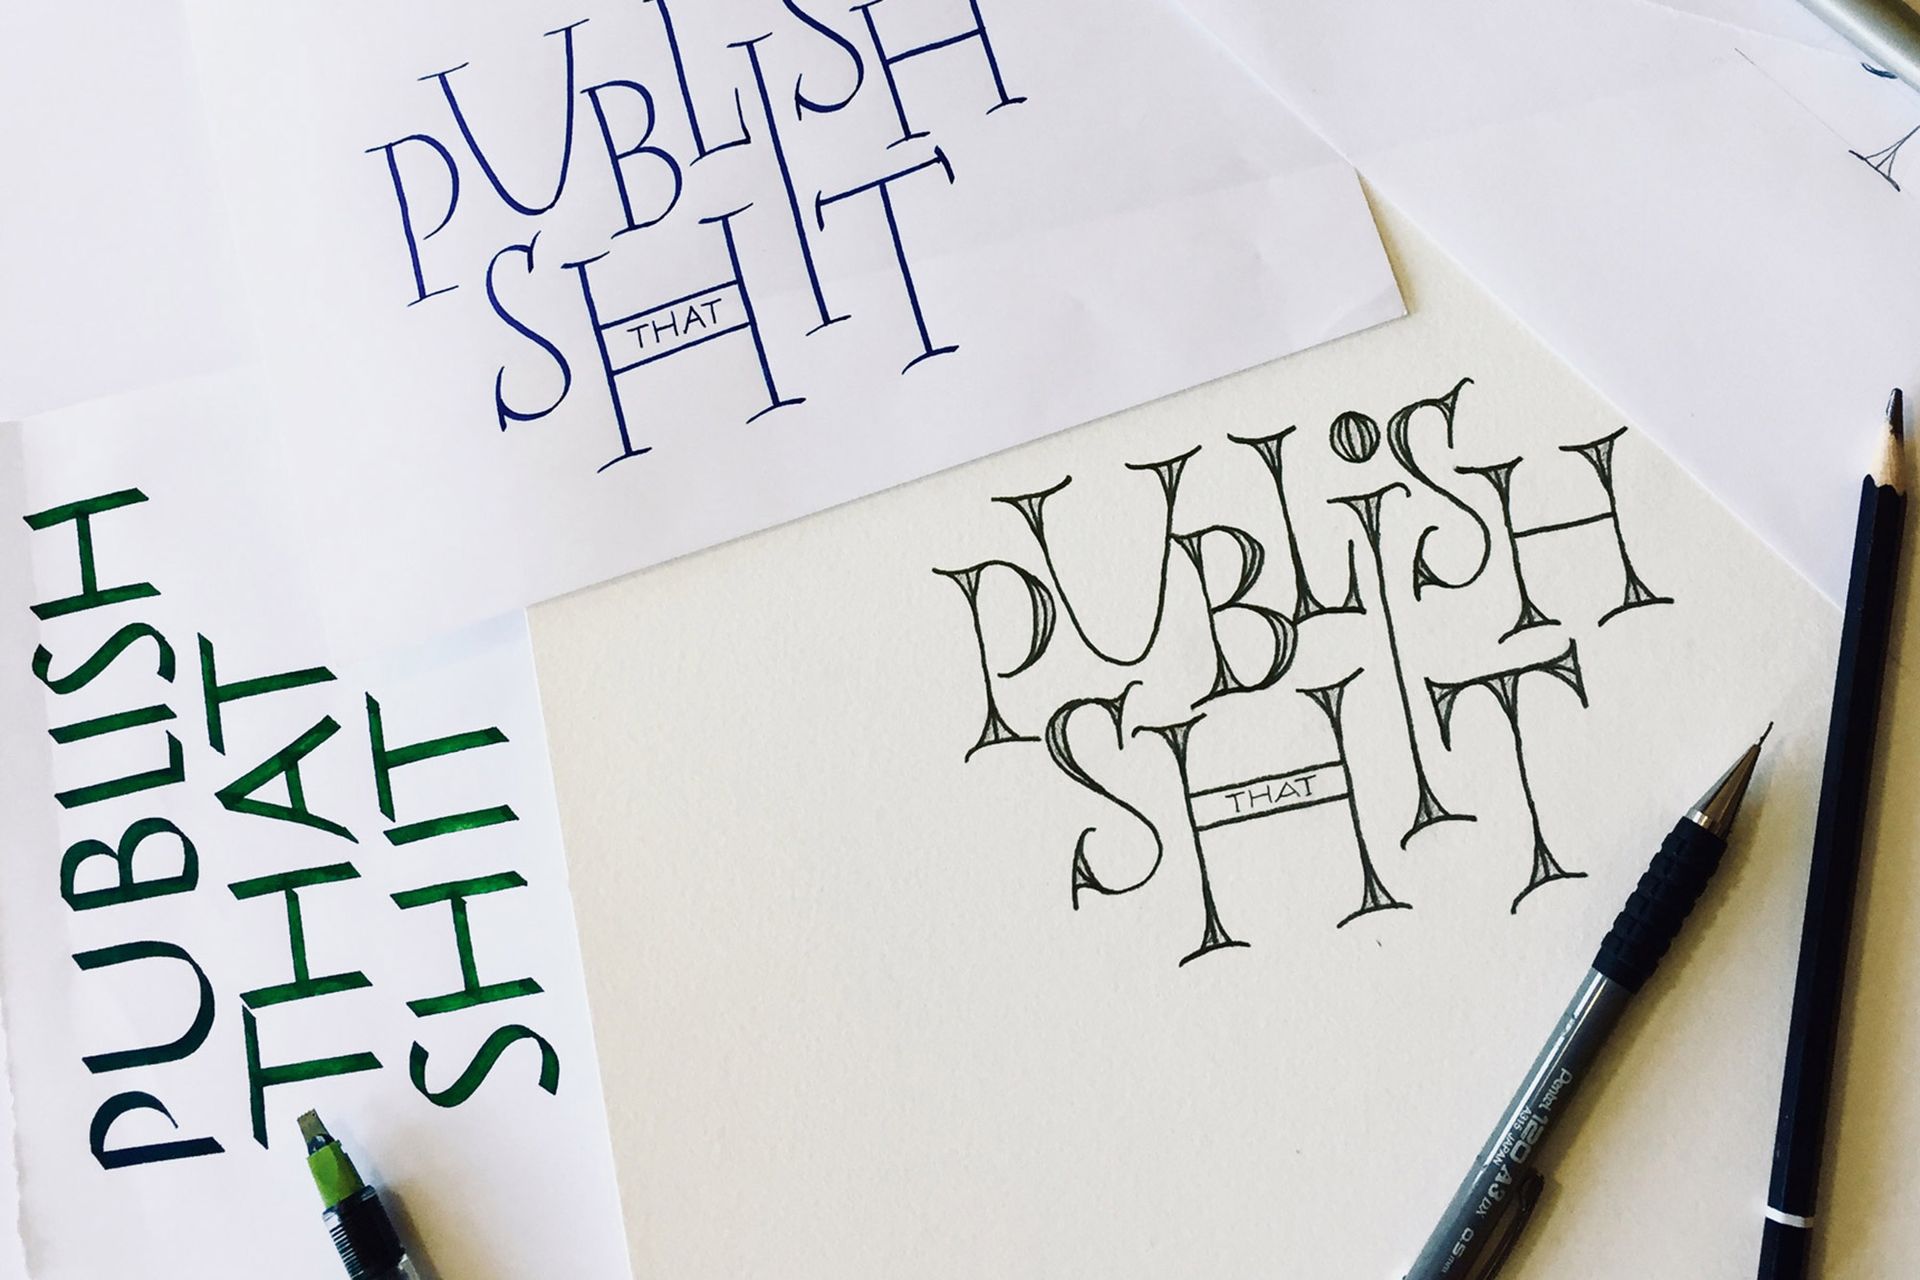 PUBLISH
SHIT
THAT
PUBLISH
THAT
SHIT
PUBLiSH
SHIT
THAT
Pentel 120 A3DX 0.5mm
A315 JAPAN